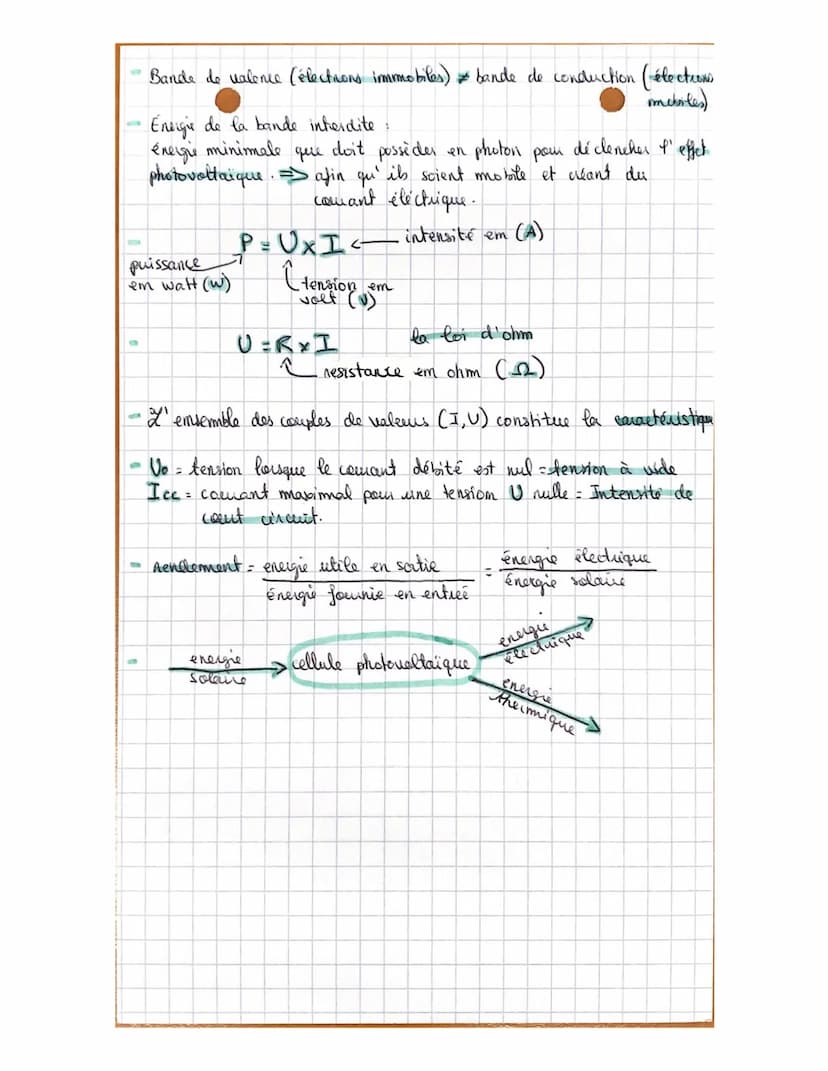 - Bande de valence (électrons immobiles) ≠ bande de conduction (électrons
mobiles)
- Énergie de la bande interdite :
énergie minimale que doit posséder en photon pour déclencher l'effet
photovoltaïque. => afin qu'ils soient mobile et créant du
courant éléctrique.
- P = U x I ← intensité em (A)
puissance
em watt (W)
tension em
volt (V)
- U = R x I la loi d'ohm
resistance em ohm (Ω)
- L'ensemble des couples de valeurs (I,U) constitue la caractéristique
- U0 = tension lorsque le courant débité est nul = tension à vide
Icc = courant maximal pour une tension U nulle = Intensité de
court circuit.
- Rendement = energie utile en sortie / énergie fournie en entrée = énergie électrique / énergie solaire
- energie solaire → cellule photovoltaïque
energie électrique
energie thermique